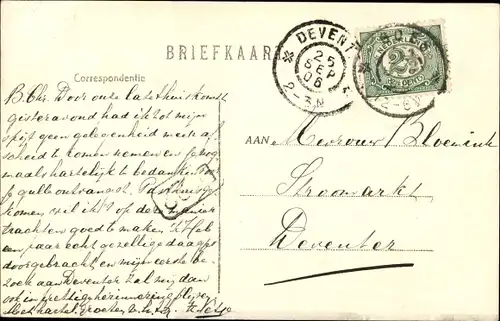 BRIEFKAART
DEVENT
25
SEP
06
2-3N
2½
CENT
Correspondentie
B. Chr. Door onze late thuiskomst
gisteravond had ik tot mijn
spijt geen gelegenheid meer af-
scheid te komen nemen en
maals hartelijk te bedanken voor
gulle ontvangst.
komen, wil ik 't op deze manier
trachten goed te maken. 'k Heb
een paar echt gezellige daagjes
doorgebracht en mijn eerste be-
zoek aan Deventer zal mij dan
ook in prettige herinnering blijven
Met hartel. groeten
AAN
Mevrouw Bloemink
Stroomarkt
Deventer